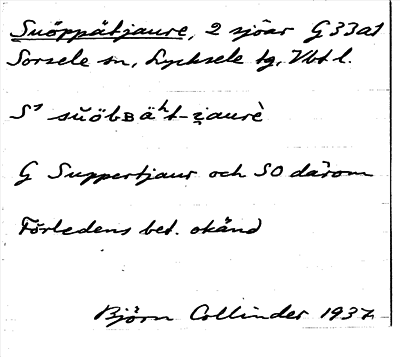 Suöppätjaure, 2 sjöar G33a1
Sorsele sn, Lycksele tg, Vbt l.
Sˢ sŭöbʙäʰt-ʒaurè
G Suppertjaur och SO därom
Förledens bet. okänd
Björn Collinder 1937